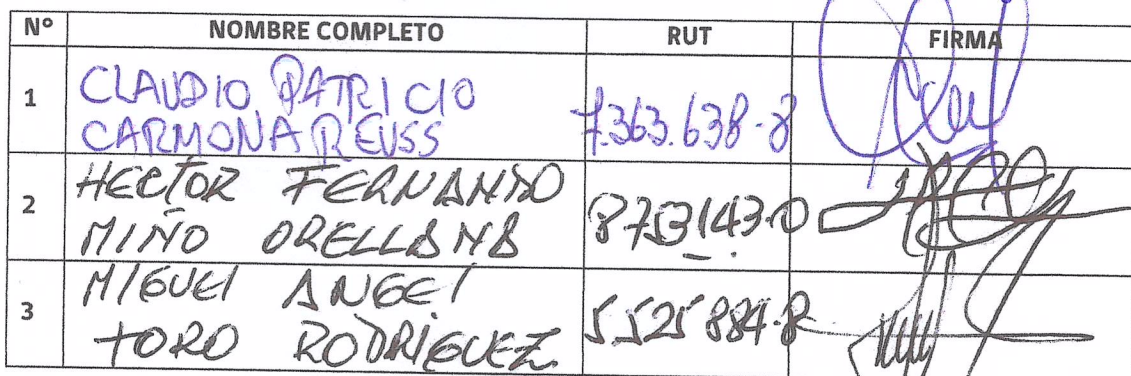 Nº NOMBRE COMPLETO RUT FIRMA
1 CLAUDIO PATRICIO
CARMONA REUSS 7.363.638-8
2 HECTOR FERNANDO
MIÑO ORELLANA 8753143-0
3 MIGUEL ANGEL
TORO RODRIGUEZ 5525884-8